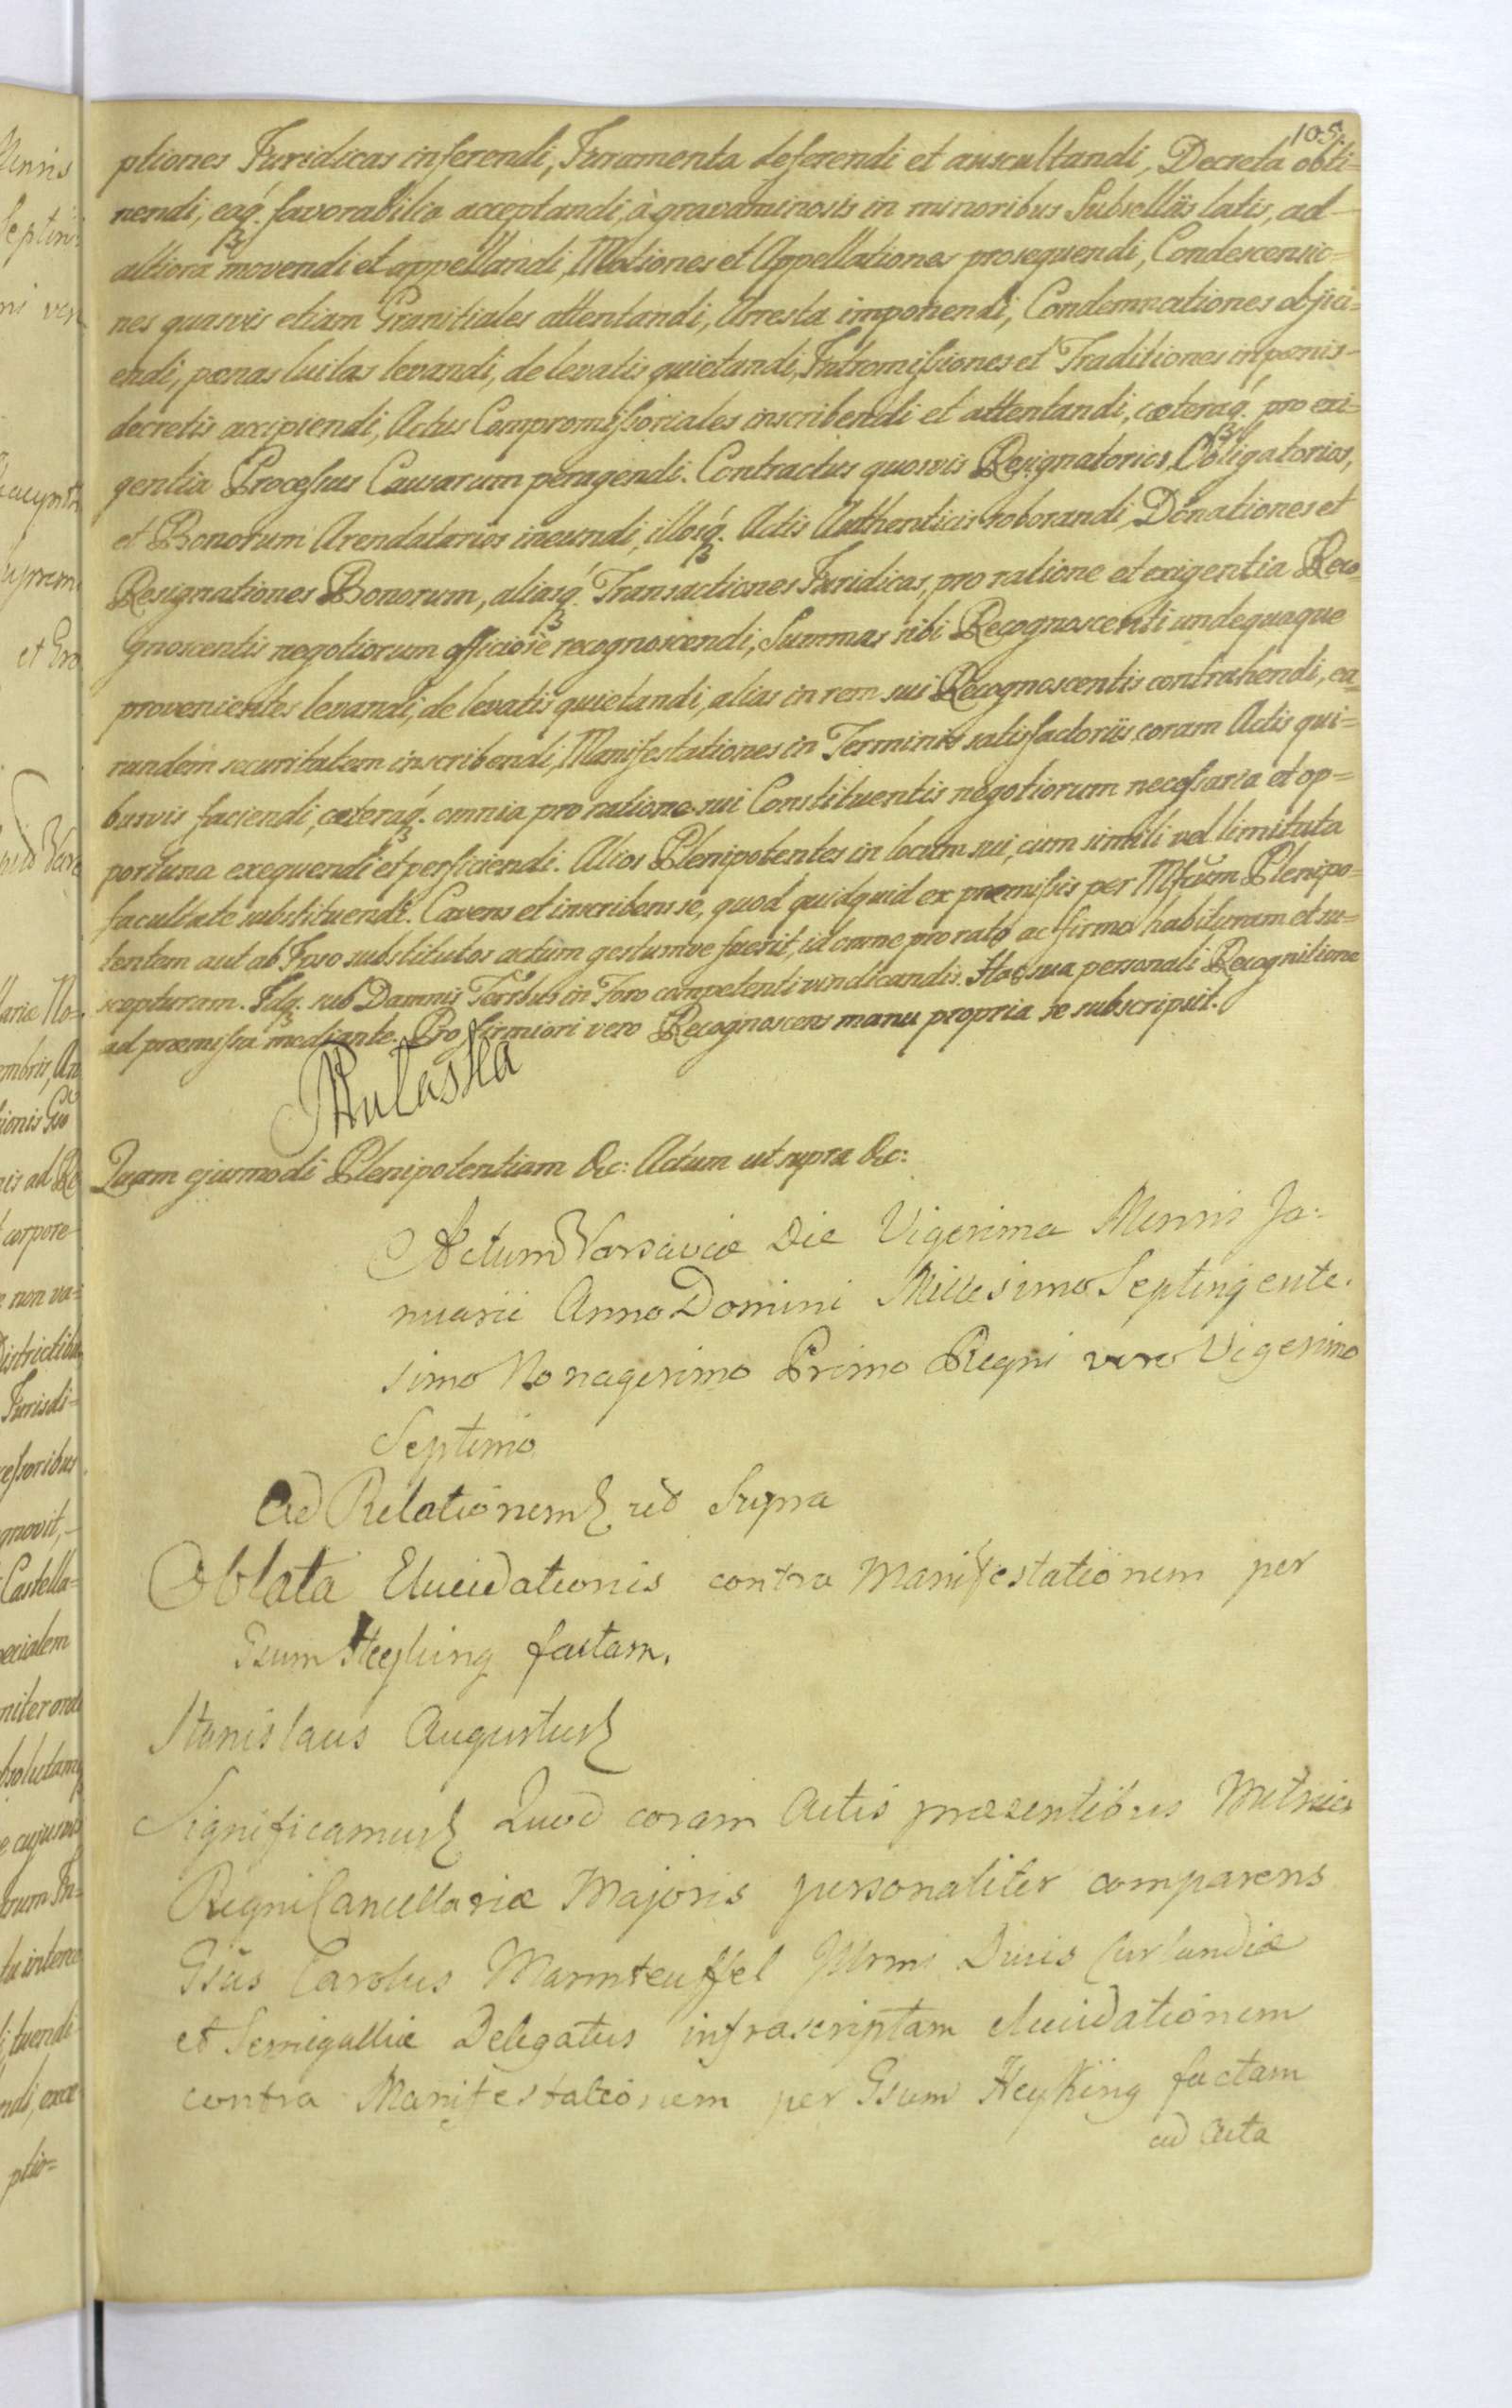 105.
ptiones Juridicas inferendi, Juramenta deferendi et auscultandi, Decreta obti-
nendi, eaq. favorabilia acceptandi, à gravaminosis in minoribus Subselliis latis, ad
altiora movendi et appellandi, Motiones et Appellationes prosequendi, Condescensio=
nes quasvis etiam Granitiales attentandi, Arresta imponendi, Condemnationes objici=
endi, pœnas luitas levandi, de levatis quietandi, Intromissiones et Traditiones in pœnis
decretis accipiendi, Actus Compromissoriales inscribendi et attentandi, cœteraq. pro exi=
gentia Processus Causarum peragendi. Contractus quosvis Resignatorios, Obligatorios,
et Bonorum Arendatarios ineundi, illosq. Actis Authenticis roborandi, Donationes et
Resignationes Bonorum, aliasq. Transactiones Juridicas, pro ratione et exigentia Reco=
gnoscentis negotiorum officiosè recognoscendi, Summas sibi Recognoscenti undequaque
provenientes levandi, de levatis quietandi, alias in rem sui Recognoscentis contrahendi, ea=
rundem securitatem inscribendi, Manifestationes in Terminis satisfactoriis coram Actis qui=
busvis faciendi, cœteraq. omnia pro ratione sui Constituentis negotiorum necessaria et op=
portuna exequendi et perficiendi. Alios Plenipotentes in locum sui, cum simili vel limitata
facultate substituendi. Cavens et inscribens se, quod quidquid ex præmissis per Mfcum Plenipo=
tentem aut ab Ipso substitutos actum gestumve fuerit, id omne pro rato ac firmo habiturum et su=
scepturum. Idq. sub Damnis Terribus in Foro competenti vindicandis. Hac sua personali Recognitione
ad præmissa mediante. Pro firmiori vero Recognoscens manu propria se subscripsit.
Pułaska
Quam ejusmodi Plenipotentiam &c: Actum ut supra &c:
Actum Varsaviæ Die Vigesima Mensis Ja-
nuarii Anno Domini Millesimo Septingente-
simo Nonagesimo Primo Regni vero Vigesimo
Septimo
Ad Relationem ut Supra
Oblata Elucidationis contra Manifestationem per
Gsum Heyking factam.
Stanislaus Augustus
Significamus Quod coram Actis præsentibus Metrices
Regni Cancellariæ Majoris personaliter comparens
Gsus Carolus Mannteuffel Illrmi Ducis Curlandiæ
et Semigalliæ Delegatus infrascriptam elucidationem
contra Manifestationem per Gsum Heyking factam
ad Acta